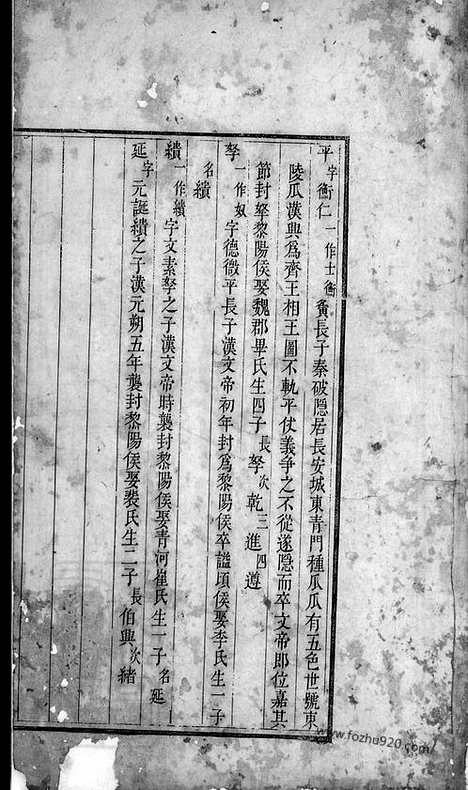 平字衡仁一作士衡貧長子秦破隱居長安城東青門種瓜瓜有五色世號東
陵瓜漢興爲齊王相王圖不軌平仗義爭之不從遂隱而卒文帝即位嘉其
節封孥黎陽侯娶魏郡畢氏生四子長孥次乾三進四遵
孥一作奴字德微平長子漢文帝初年封爲黎陽侯卒謚頃侯娶李氏生一子
名繢
繢一作續字文素孥之子漢文帝時襲封黎陽侯娶青河崔氏生一子名延
延字元誕繢之子漢元朔五年襲封黎陽侯娶裴氏生二子長伯興次緒
www.fozhu920.com